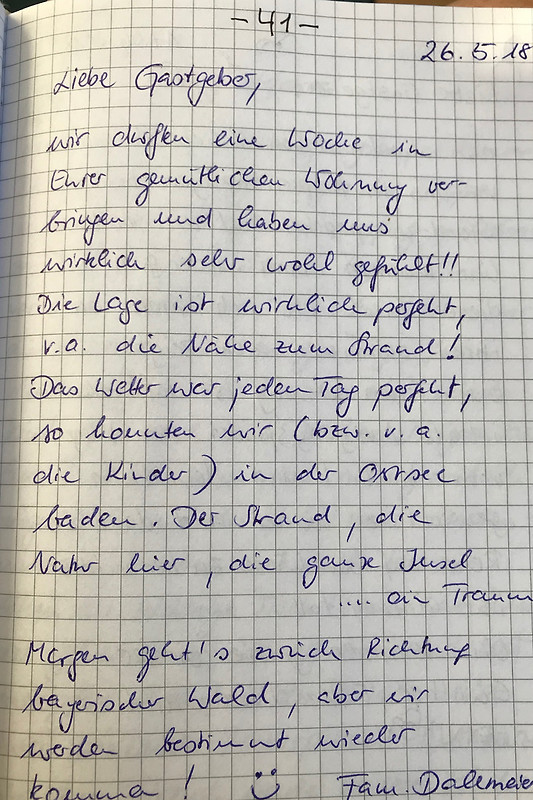 - 41 -
26.5.18
Liebe Gastgeber,
wir durften eine Woche in
Eurer gemütlichen Wohnung ver-
bringen und haben uns
wirklich sehr wohl gefühlt!!
Die Lage ist wirklich perfekt,
v.a. die Nähe zum Strand!
Das Wetter war jeden Tag perfekt,
so konnten wir (bzw. v. a.
die Kinder) in der Ostsee
baden. Der Strand, die
Natur hier, die ganze Insel
.... ein Traum
Morgen geht's zurück Richtung
bayerischer Wald, aber wir
werden bestimmt wieder
kommen! Fam. Dallmeier